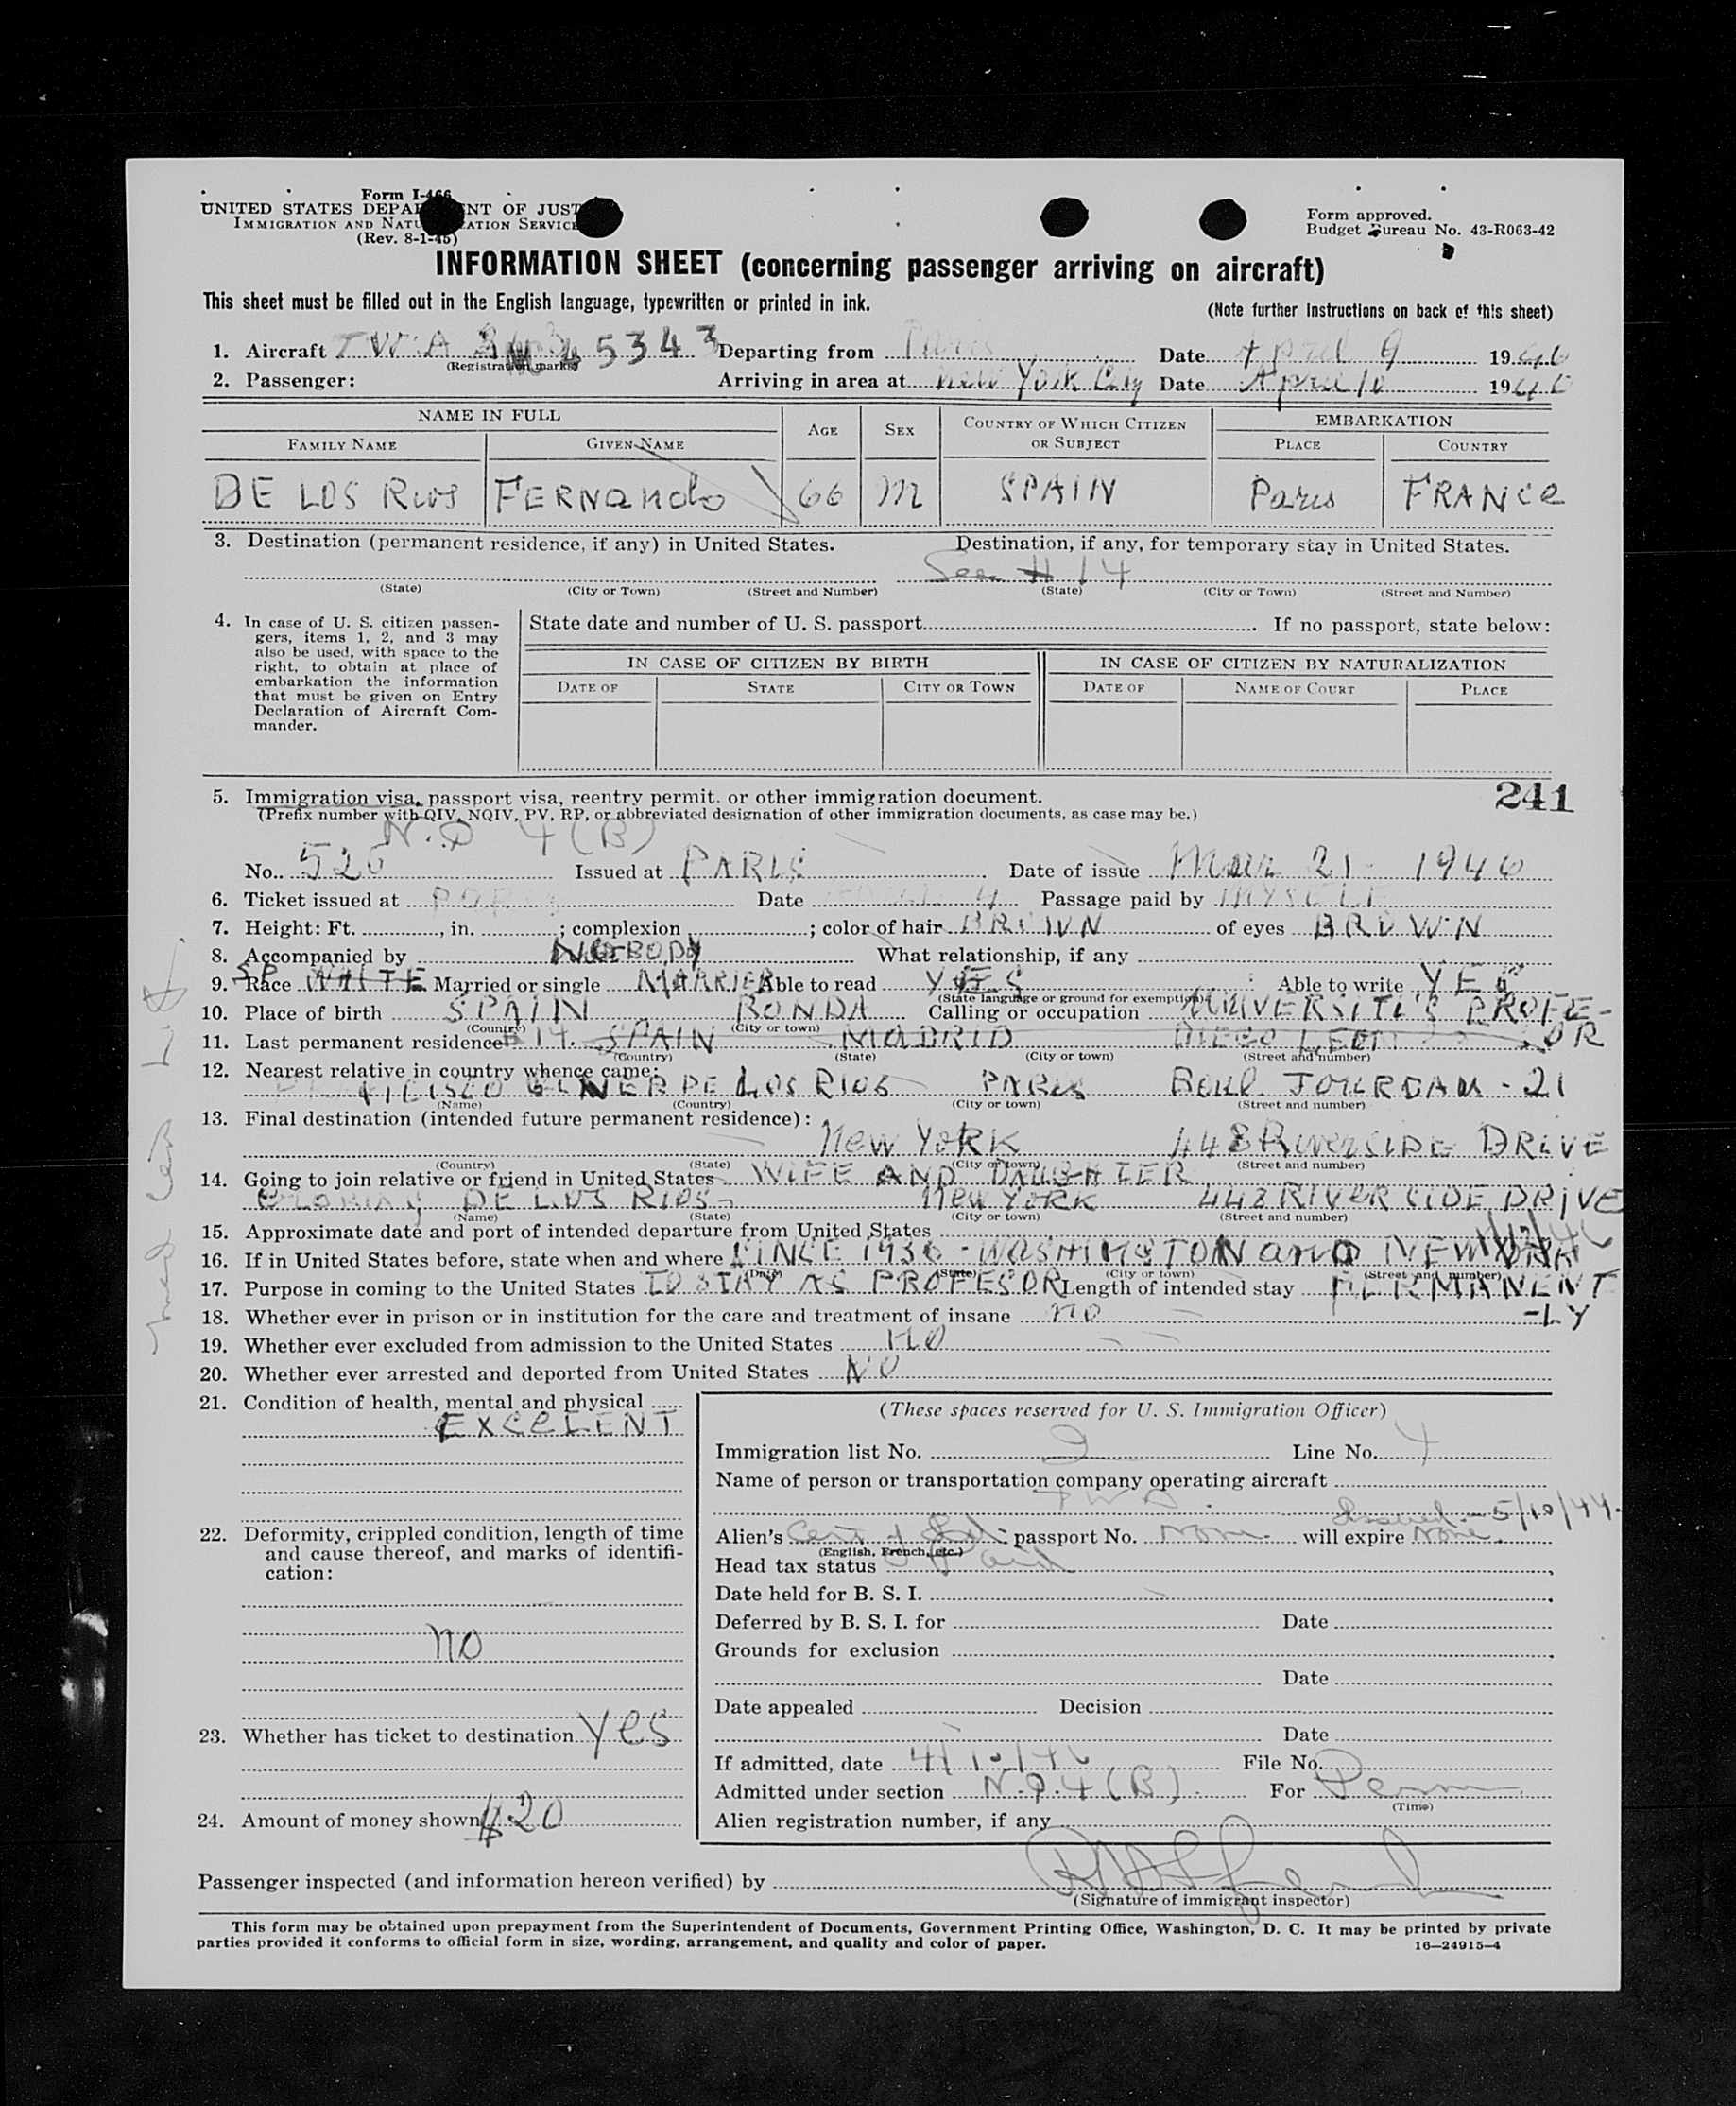 Form I-466
UNITED STATES DEPARTMENT OF JUSTICE
IMMIGRATION AND NATURALIZATION SERVICE
(Rev. 8-1-45)
Form approved.
Budget Bureau No. 43-R063-42
INFORMATION SHEET (concerning passenger arriving on aircraft)
This sheet must be filled out in the English language, typewritten or printed in ink.
(Note further instructions on back of this sheet)
1. Aircraft TWA 45343 Departing from Paris Date April 9 1946
(Registration marks)
2. Passenger: Arriving in area at New York City Date April 10 1946
NAME IN FULL AGE SEX COUNTRY OF WHICH CITIZEN OR SUBJECT EMBARKATION
FAMILY NAME GIVEN NAME PLACE COUNTRY
DE LOS RIOS FERNANDO 66 M SPAIN Paris FRANCE
3. Destination (permanent residence, if any) in United States. Destination, if any, for temporary stay in United States.
See # 14
(State) (City or Town) (Street and Number) (State) (City or Town) (Street and Number)
4. In case of U. S. citizen passengers, items 1, 2, and 3 may also be used, with space to the right, to obtain at place of embarkation the information that must be given on Entry Declaration of Aircraft Commander.
State date and number of U. S. passport If no passport, state below:
IN CASE OF CITIZEN BY BIRTH IN CASE OF CITIZEN BY NATURALIZATION
DATE OF STATE CITY OR TOWN DATE OF NAME OF COURT PLACE
241
5. Immigration visa, passport visa, reentry permit, or other immigration document.
(Prefix number with QIV, NQIV, PV, RP, or abbreviated designation of other immigration documents, as case may be.)
N.Q 4(B)
No. 520 Issued at PARIS Date of issue Mar 21 1946
6. Ticket issued at Date Passage paid by MYSELF
7. Height: Ft. , in. ; complexion ; color of hair BROWN of eyes BROWN
8. Accompanied by NOBODY What relationship, if any
9. Race SP WHITE Married or single MARRIED Able to read YES Able to write YES
(State language or ground for exemption)
10. Place of birth SPAIN RONDA Calling or occupation UNIVERSITI'S PROFE-
(Country) (City or town)
11. Last permanent residence SPAIN MADRID DIEGO LEON OR
(Country) (State) (City or town) (Street and number)
12. Nearest relative in country whence came:
GINER DE LOS RIOS PARIS Boul. JOURDAN - 21
(Name) (Country) (City or town) (Street and number)
13. Final destination (intended future permanent residence):
New YORK 448 RIVERSIDE DRIVE
(Country) (State) (City or town) (Street and number)
14. Going to join relative or friend in United States WIFE AND DAUGHTER
GLORIA DE LOS RIOS New YORK 448 RIVERSIDE DRIVE
(Name) (State) (City or town) (Street and number)
15. Approximate date and port of intended departure from United States
16. If in United States before, state when and where SINCE 1936 - WASHINGTON and NEW YORK
(Date) (State) (City or town) (Street and number)
17. Purpose in coming to the United States TO STAY AS PROFESOR Length of intended stay PERMANENT
-LY
18. Whether ever in prison or in institution for the care and treatment of insane no
19. Whether ever excluded from admission to the United States NO
20. Whether ever arrested and deported from United States NO
21. Condition of health, mental and physical
EXCELENT
22. Deformity, crippled condition, length of time and cause thereof, and marks of identification:
no
23. Whether has ticket to destination yes
24. Amount of money shown $20
(These spaces reserved for U. S. Immigration Officer)
Immigration list No. 2 Line No. 4
Name of person or transportation company operating aircraft
TWA
Issued 5/10/44.
Alien's passport No. None will expire None.
(English, French, etc.)
Head tax status Paid
Date held for B. S. I.
Deferred by B. S. I. for Date
Grounds for exclusion
Date
Date appealed Decision
Date
If admitted, date 4/10/46 File No.
Admitted under section N.Q.4(B). For Perm
(Time)
Alien registration number, if any
Passenger inspected (and information hereon verified) by
(Signature of immigrant inspector)
This form may be obtained upon prepayment from the Superintendent of Documents, Government Printing Office, Washington, D. C. It may be printed by private
parties provided it conforms to official form in size, wording, arrangement, and quality and color of paper.
16—24915-4